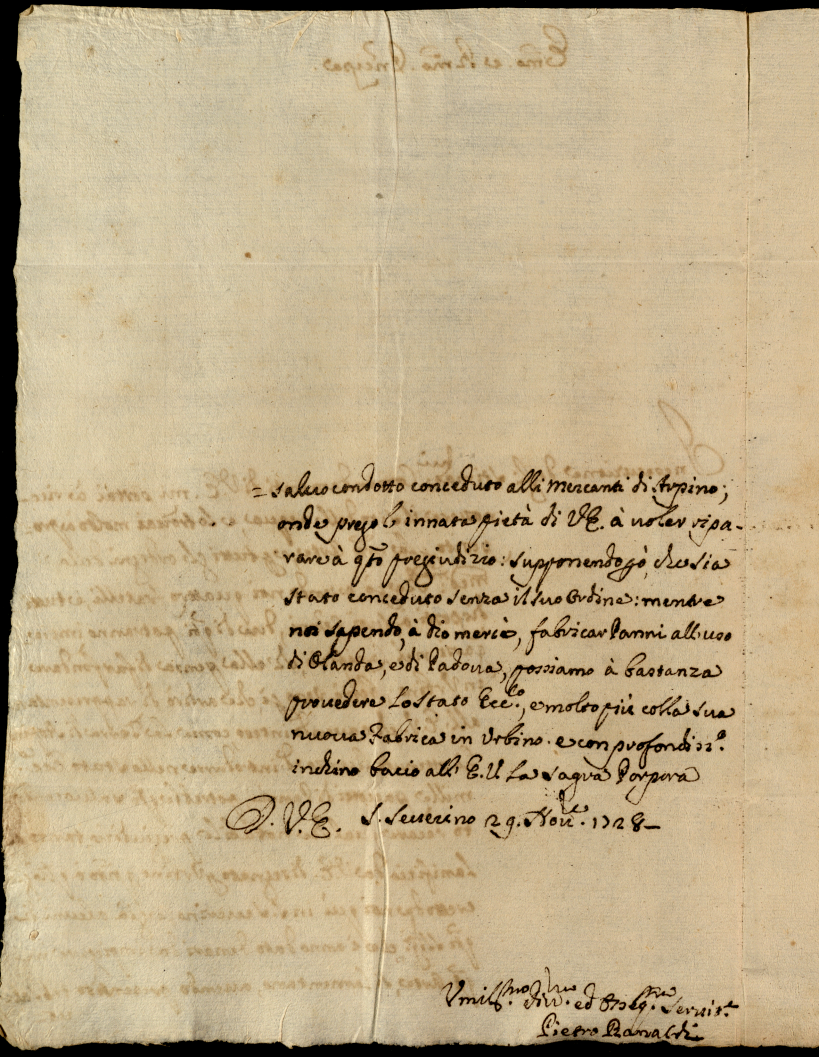 = salvocondotto conceduto alli Mercanti di Arpino;
onde prego l'innata pietà di V.E. à voler ripa-
rare à q.to pregiudizio: supponendo p.ò, che sia
stato conceduto senza il suo Ordine: mentre
noi sapendo, à Dio mercè, fabricar Panni all'uso
di Olanda, e di Padova, possiamo à bastanza
provedere Lo Stato Ecc.co, e molto più colla sua
nuova Fabrica in Urbino. e con profondiss.o
inchino bacio all' E.V. La Sagra Porpora
D. V. E. S. Severino 29. Nov.e 1728 –
Umiliss.mo ed Serv.re
Pietro Ranaldi